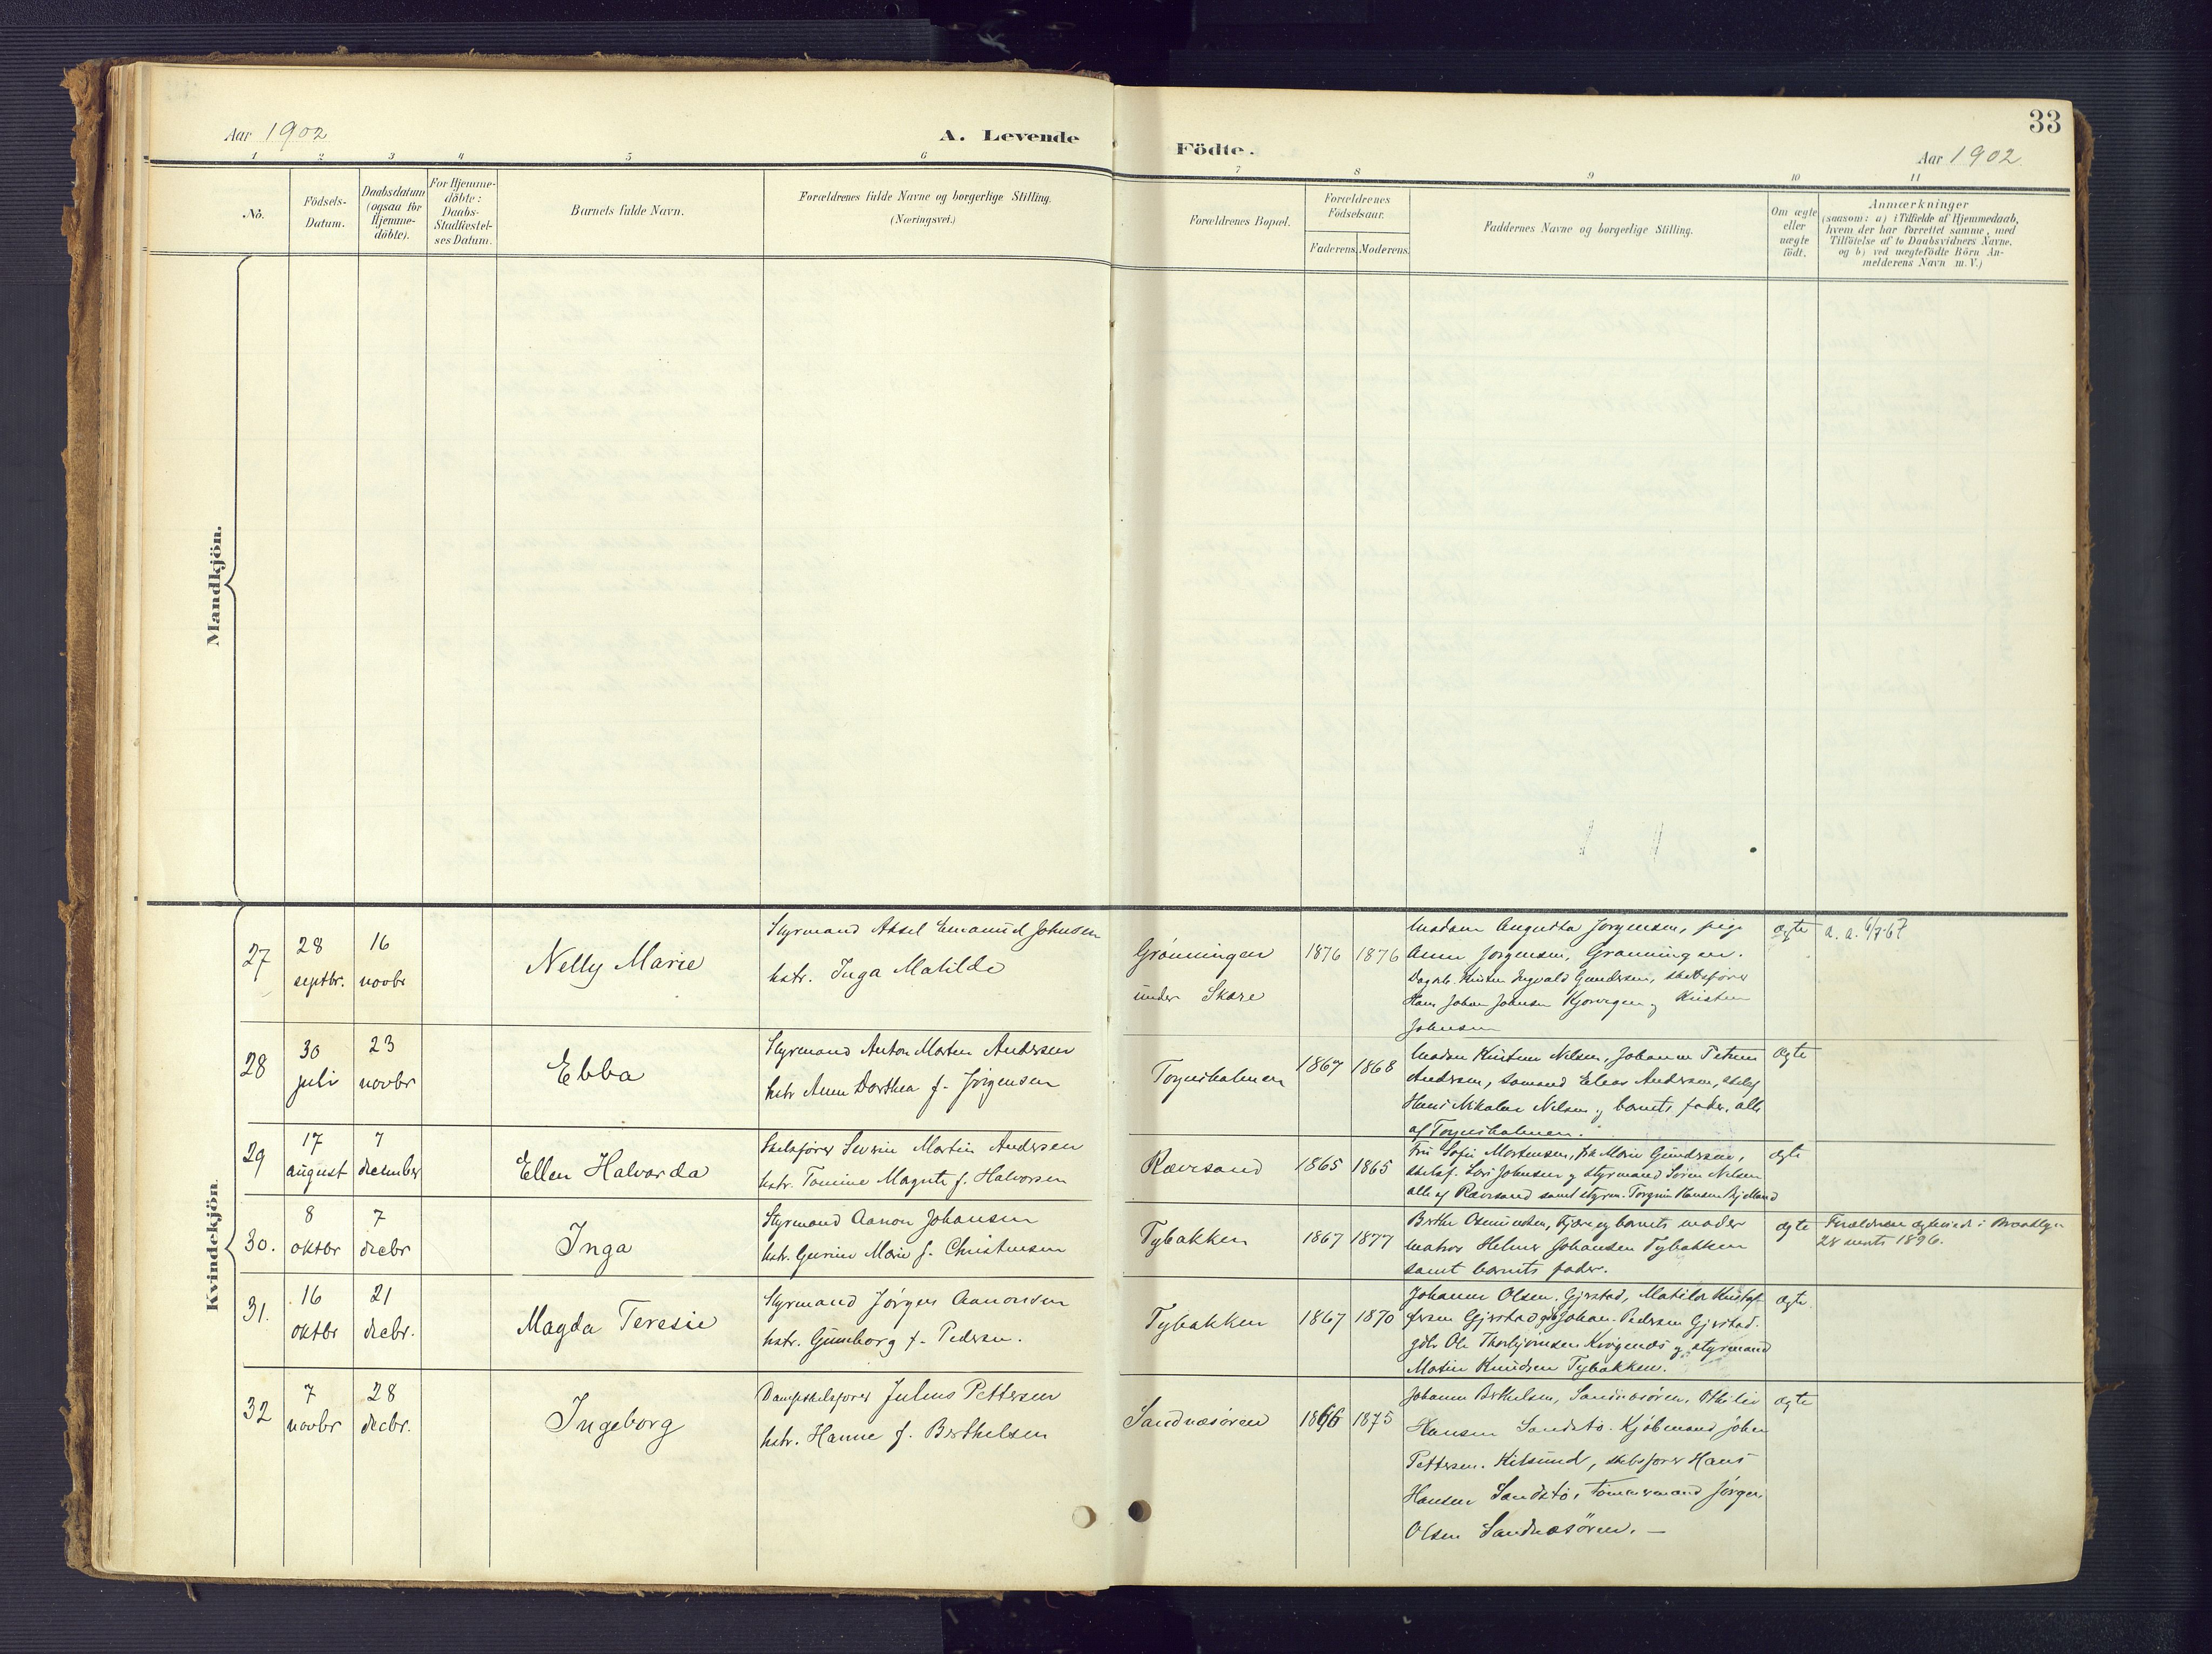 33
Aar 1902
A. Levende
Födte.
Aar 1902
1 2 3 4 5 6 7 8 9 10 11
No.
Födsels-
Datum.
Daabsdatum
(ogsaa for
Hjemme-
döbte).
For Hjemme-
döbte:
Daabs-
Stadfæstel-
ses Datum.
Barnets fulde Navn.
Forældrenes fulde Navne og borgerlige Stilling.
(Næringsvei.)
Forældrenes Bopæl.
Forældrenes
Födselsaar.
Faderens. Moderens.
Faddernes Navne og borgerlige Stilling.
Om ægte
eller
uægte
födt.
Anmærkninger
(saasom: a) i Tilfælde af Hjemmedaab,
hvem der har forrettet samme, med
Tilföielse af to Daabsvidners Navne.
og b) ved uægtefödte Börn An-
melderens Navn m. V.)
Mandkjön.
Kvindekjön
27
28
septbr.
16
novbr
Nelly Marie
Styrmand Aksel Emanuel Johnsen
hstr. Inga Matilde
Grönningen
under Skare
1876 1876
Madam Augusta Jorgensen, pige
Anne Jorgensen, Gronningen.
Ingvald Gundersen, skibsfører
Hans Johan Johnsen og Kristen
Johnsen
ægte
a. a. 6/7-67
28
30
juli
23
novbr
Ebba
Styrmand Anton Morten Andersen
hstr Anne Dorthea f. Jörgensen
Toynesholmen
1867 1868
Madam Kristine Nilsen, Johanne Petrine
Andersen, Sømand Elias Andersen,
Hans Nikolai Nilsen og barnets fader, alle
af Toynesholmen.
ægte
29
17
august
7
december
Ellen Halvarda
Skibsfører Severin Martin Andersen
hstr. Tomine Magrete f. Halvorsen
Rævesand
1865 1865
Fru Sofie Mortensen, frk Marie Gundersen,
skibsf. Johnsen og styrmand Sören Nilsen
alle af Rævesand samt styrm. Hansen
ægte
30.
8
oktbr
7
decbr
Inga
Styrmand Aanon Johansen
hstr. Gurine Marie f. Christensen
Tybakken
1867 1877
Berthe og barnets moder
matros Helmer Johansen Tybakken
samt barnets fader.
ægte
Forældrene ægteviede i Brooklyn
28 marts 1896.
31.
16
oktbr
21
decbr.
Magda Teresie
Styrmand Jörgen Aanonsen
hstr. Gunborg f. Pedersen.
Tybakken
1867 1870
Johanne Olsen, Gjerstad, Matilde Kristof-
fersen Gjerstad, Johan Pedersen Gjerstad.
gdr. Ole Thorbjörnsen og styrmand
Martin Knudsen Tybakken.
ægte
32
7
novbr
28
decbr.
Ingeborg
Dampskibsfører Julius Pettersen
hstr. Hanne f. Berthelsen
Sandnæsören
1866 1875
Johanne Berthelsen, Sandnæsören, Othilie
Hansen Sandstö. Kjöbmand Johan
Pettersen. Kilsund, skibsfører Hans
Hansen Sandstö, tömmermand Jörgen
Olsen Sandnæsören. —
ægte